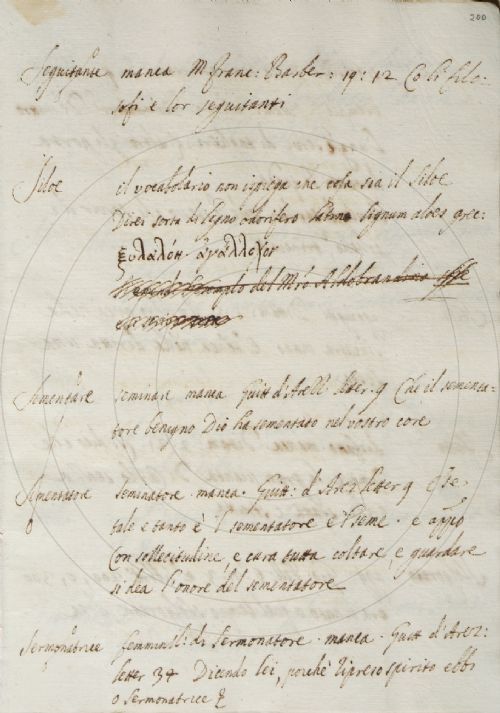 200
Seguitante manca M Franc: Barber: 19: 12 Co li filo-
sofi e lor seguitanti
Siloe el vocabolario non ispiega che cosa sia il Siloe
Direi sorta di legno odorifero latino lignum aloes grec:
ξυλαλόη ἀγάλλοχον
del Mro Aldobrandino
Sementare seminare manca Guitt d'Arezz letter. 9 Che il sementa-
tore benigno Dio ha sementato nel vostro core
Sementatore seminatore. manca. Guitt: d'Arez letter 9
tale e tanto è l sementatore e l seme. e appo
con sollecitudine e cura tutta coltare, e guardare
si dea l'onore del sementatore
Sermonatrice femminil: di Sermonatore. manca. Guitt d'Arez:
letter 34 Dicendo lei, poichè ripreso spirito ebbi
o Sermonatrice